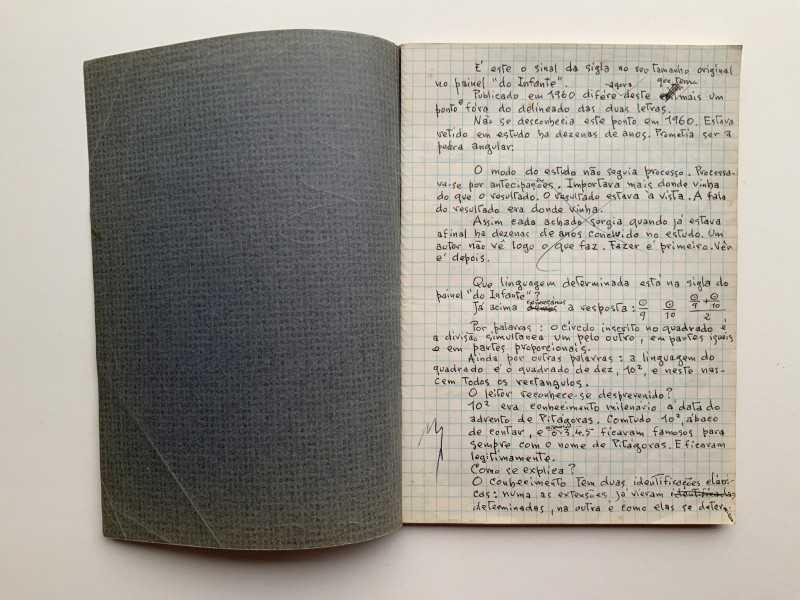 E' este o sinal da sigla no seu tamanho original
no painel "do Infante".
Publicado em 1960 difére deste agora que tem mais um
ponto e fóra do delineado das duas letras.
Não se desconhecia este ponto em 1960. Estava
retido em estudo ha dezenas de anos. Prometia ser a
pedra angular.
O modo do estudo não seguia processo. Processa-
va-se por antecipações. Importava mais donde vinha
do que o resultado. O resultado estava à vista. A fala
do resultado era donde vinha.
Assim cada achado sorgia quando já estava
afinal ha dezenas de anos concluido no estudo. Um
autor não vê logo o que faz. Fazer é primeiro. Vêr
é depois.
Que linguagem determinada está na sigla do
painel "do Infante"?
Já acima demos a resposta: ⊙/9 ⊙/10 (⊙/9 + ⊙/10)/2
Por palavras: o círculo inscrito no quadrado é
a divisão simultanea um pelo outro, em partes iguais
e em partes proporcionais.
Ainda por outras palavras: a linguagem do
quadrado é o quadrado de dez, 10², e neste nas-
cem todos os rectangulos.
O leitor reconhece-se desprevenido?
10² era conhecimento milenário à data do
advento de Pitágoras. Comtudo 10², ábaco
de contar, e o 3.4.5 ficavam famosos para
sempre com o nome de Pitágoras. E ficavam
legitimamente.
Como se explica?
O conhecimento tem duas identificações
cas: numa as extensões já vieram identificadas
determinadas, na outra é como elas se